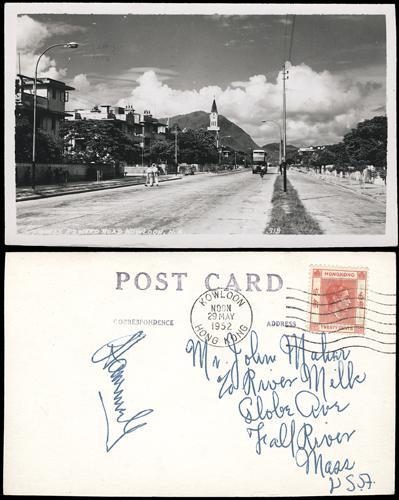 EDWARD ROAD KOWLOON, H.K.
POST CARD
CORRESPONDENCE
ADDRESS
KOWLOON
NOON
29 MAY
1952
HONG KONG
HONGKONG
TWENTY CENTS
Mr. John Maher
c/o River Milk
Globe Ave
Fall River
Mass
U.S.A.